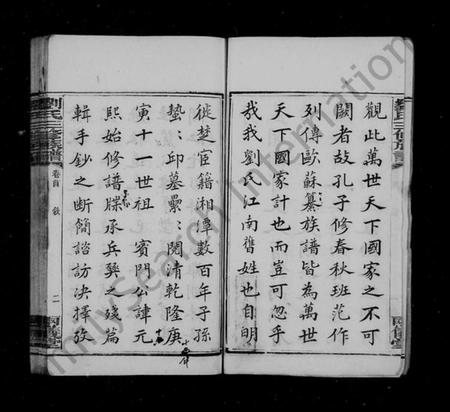 觀此萬世天下國家之不可
闕者故孔子修春秋班范作
列傳歐蘇纂族譜皆為萬世
天下國家計也而豈可忽乎
哉我劉氏江南舊姓也自明
從楚宦籍湘潭數百年子孫
蟄:邱墓纍:閱清乾隆庚
寅十一世祖 賓門公諱元
熙始修譜牒承兵燹之殘篇
輯手鈔之斷簡諮訪決擇攷
劉氏三修族譜 卷首 敘 二
劉氏三修族譜
FamilySearch International